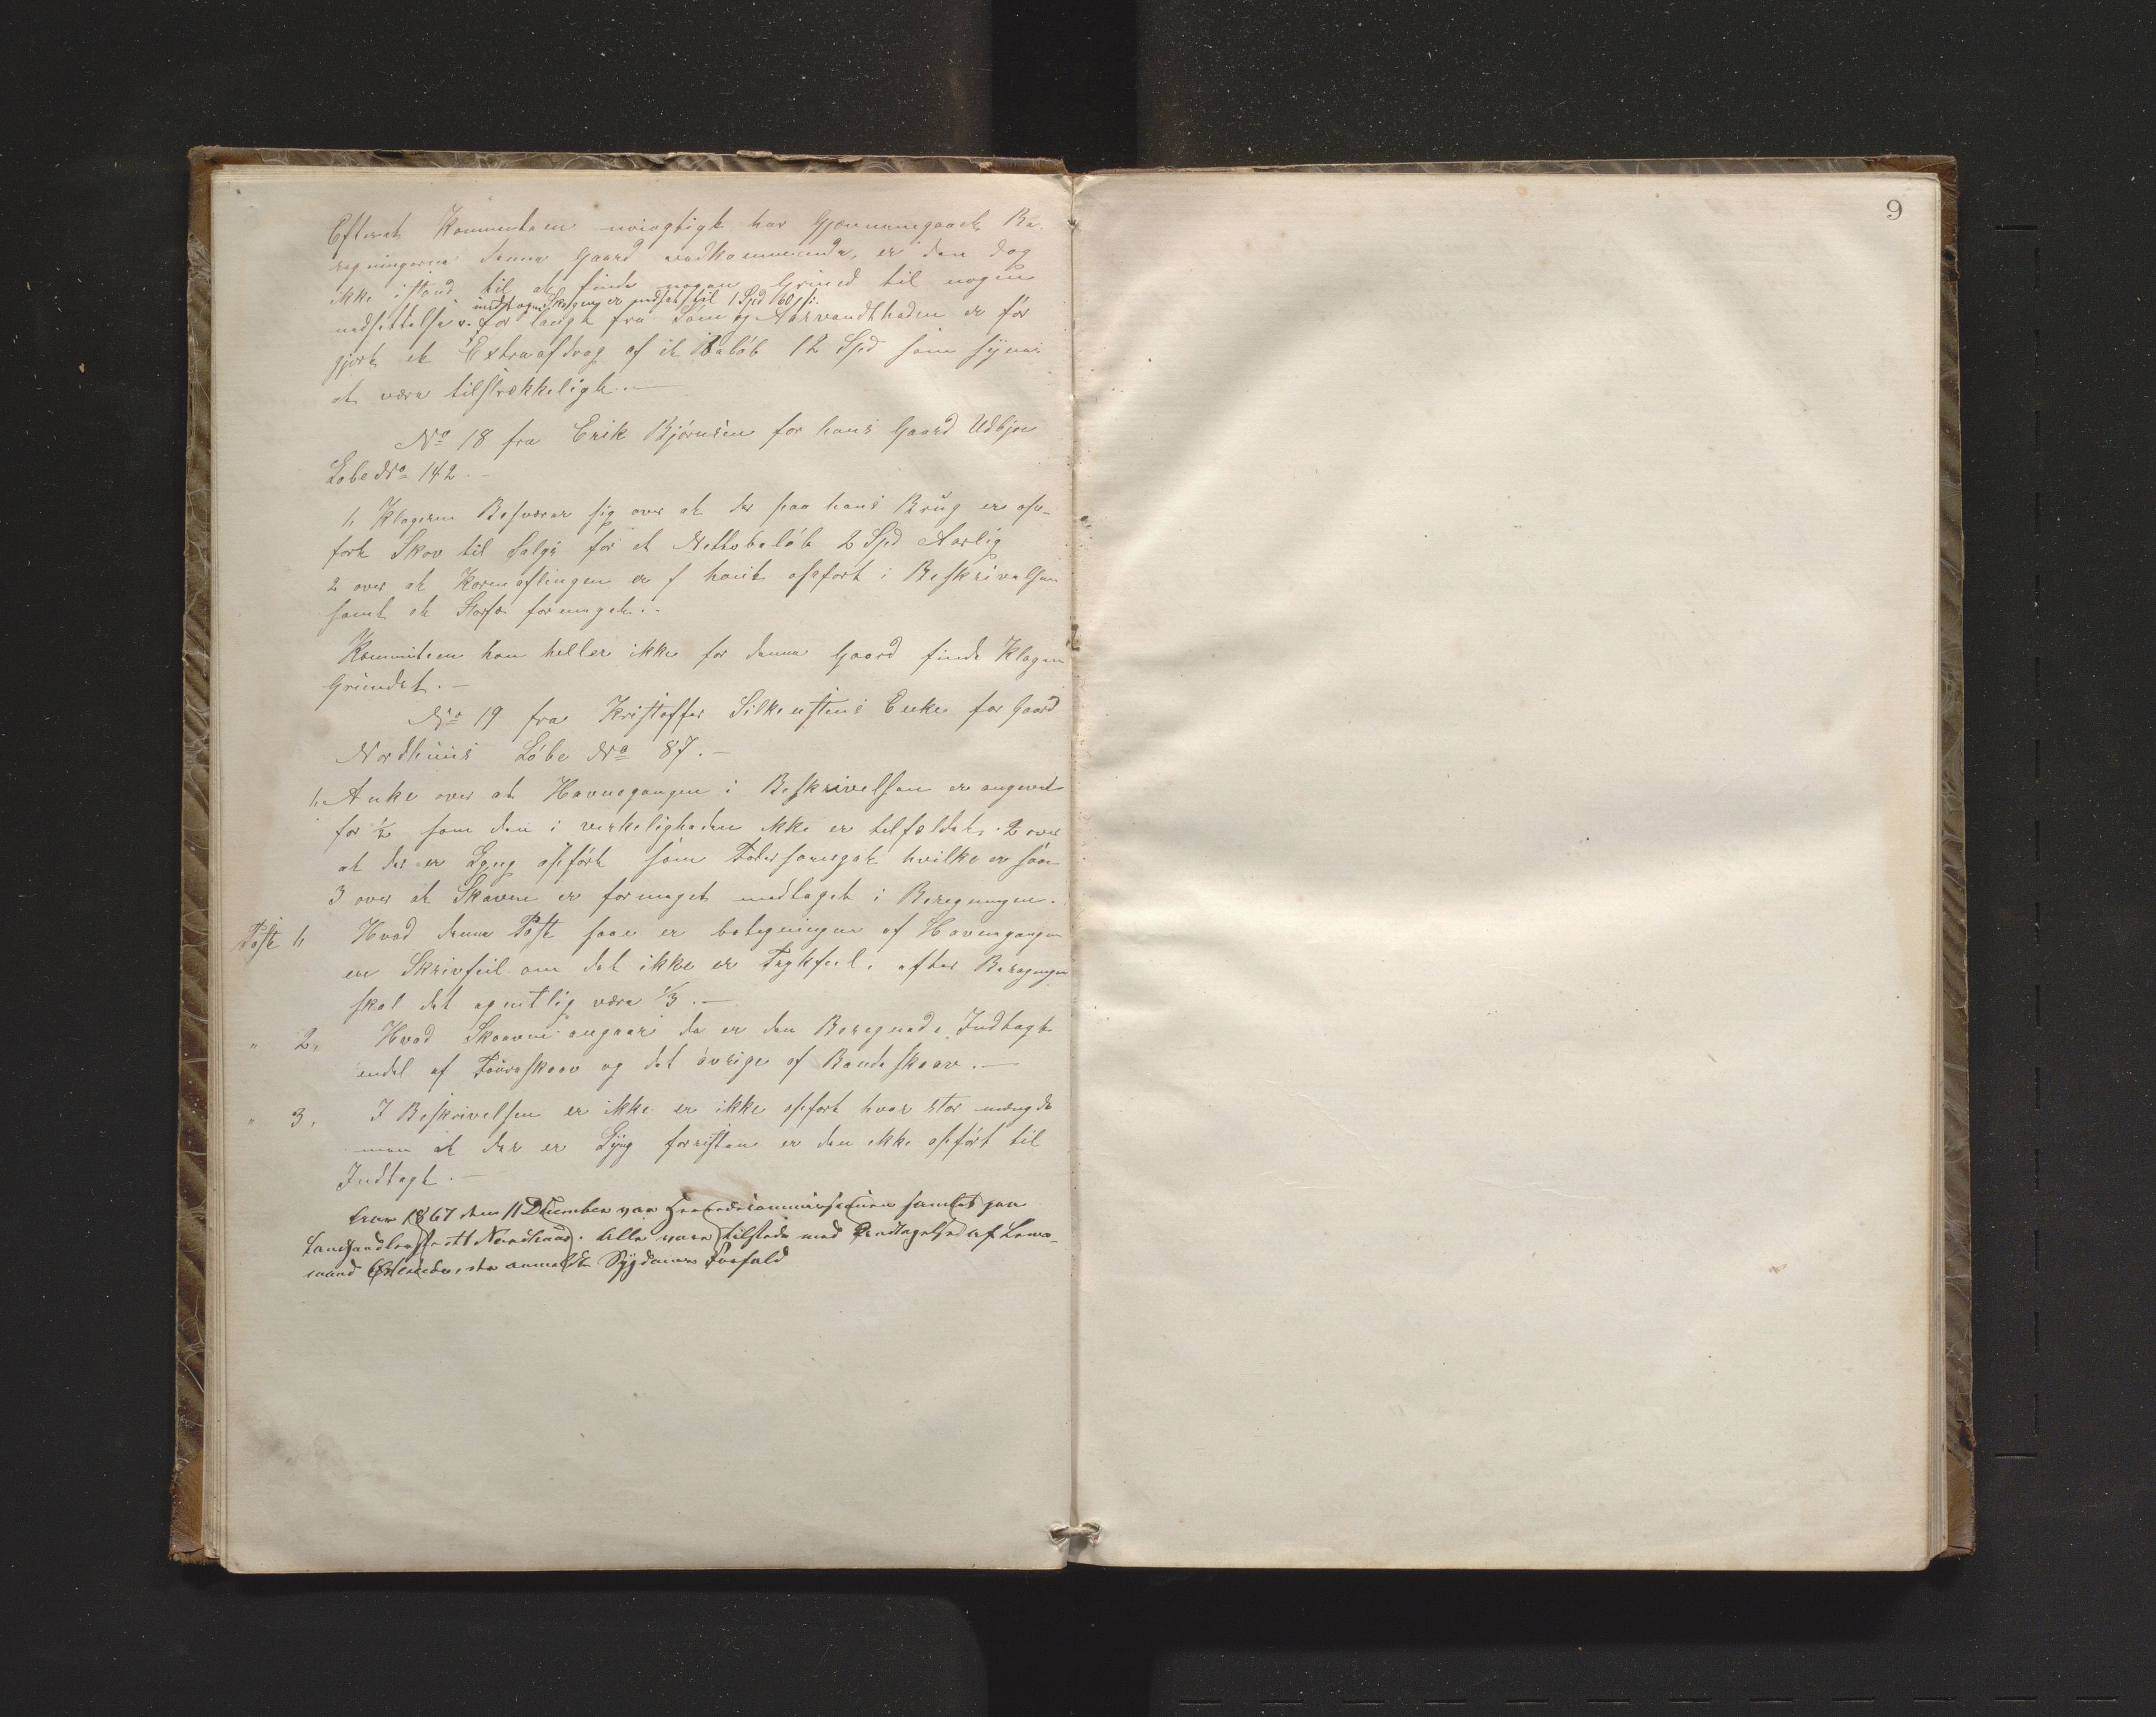 9
Efterat Kommiteen nöiagtigt har Gjennemgaaet Be
regningerne denne Gaard vedkommende, er den dog
ikke istand til at finde nogen Grund til nogen
indtagen Skogen er nedsat til 1 Spd 60 s:
nedsettelse v. for langt fra Söm og Aarvandtheden er før
gjort et Extraafdrag af et Beløb 12 Spd som synes
at være tilstrækkeligt. —
No 18 fra Erik Bjørnsen for hans Gaard Udbjoe
Løbe No 142. —
1, Klageren Besværer sig over at der paa hans Brug er op-
ført Skov til Salgs for et Nettobeløb 2 Spd Aarlig
2 over at Kornavlingen er f høit opført i Beskrivelsen
samt et Storfæ formeget. —
Kommiteen kan heller ikke for denne Gaard finde Klagen
Grundet. —
No 19 fra Kristoffer Silkensteens Enke for Gaard
Nordhuus Løbe No 87. —
1, Anke over at Havnegangen i Beskrivelsen er angivet
for ½ som den i verkeligheden ikke er telfældet. 2 over
at der er Lyng opført som Fodersurrogat hvilke er
3 over at Skoven er formeget medtaget i Beregningen.
Post 1, Hvad denne Post saa er betegningen af Havnegangen
en Skrivfeil om det ikke er Trykfeil. efter Beregningen
skal det egentlig være ⅓. —
" 2, Hvad Skoven angaar da er den Beregnede Indtægt
endel af Furuskov og det øvrige af Brændeskov. —
" 3, I Beskrivelsen er ikke er ikke opført hvor stor mængde
men at der er Lyng forresten er den ikke opført til
Indtægt. —
Aar 1867 den 11 December var Herredscommissionen samlet paa
Landhandlerstedt Nordhuus. Alle vare tilstede med Undtagelse af Lens-
mand der anmeldte Sygdoms Forfald